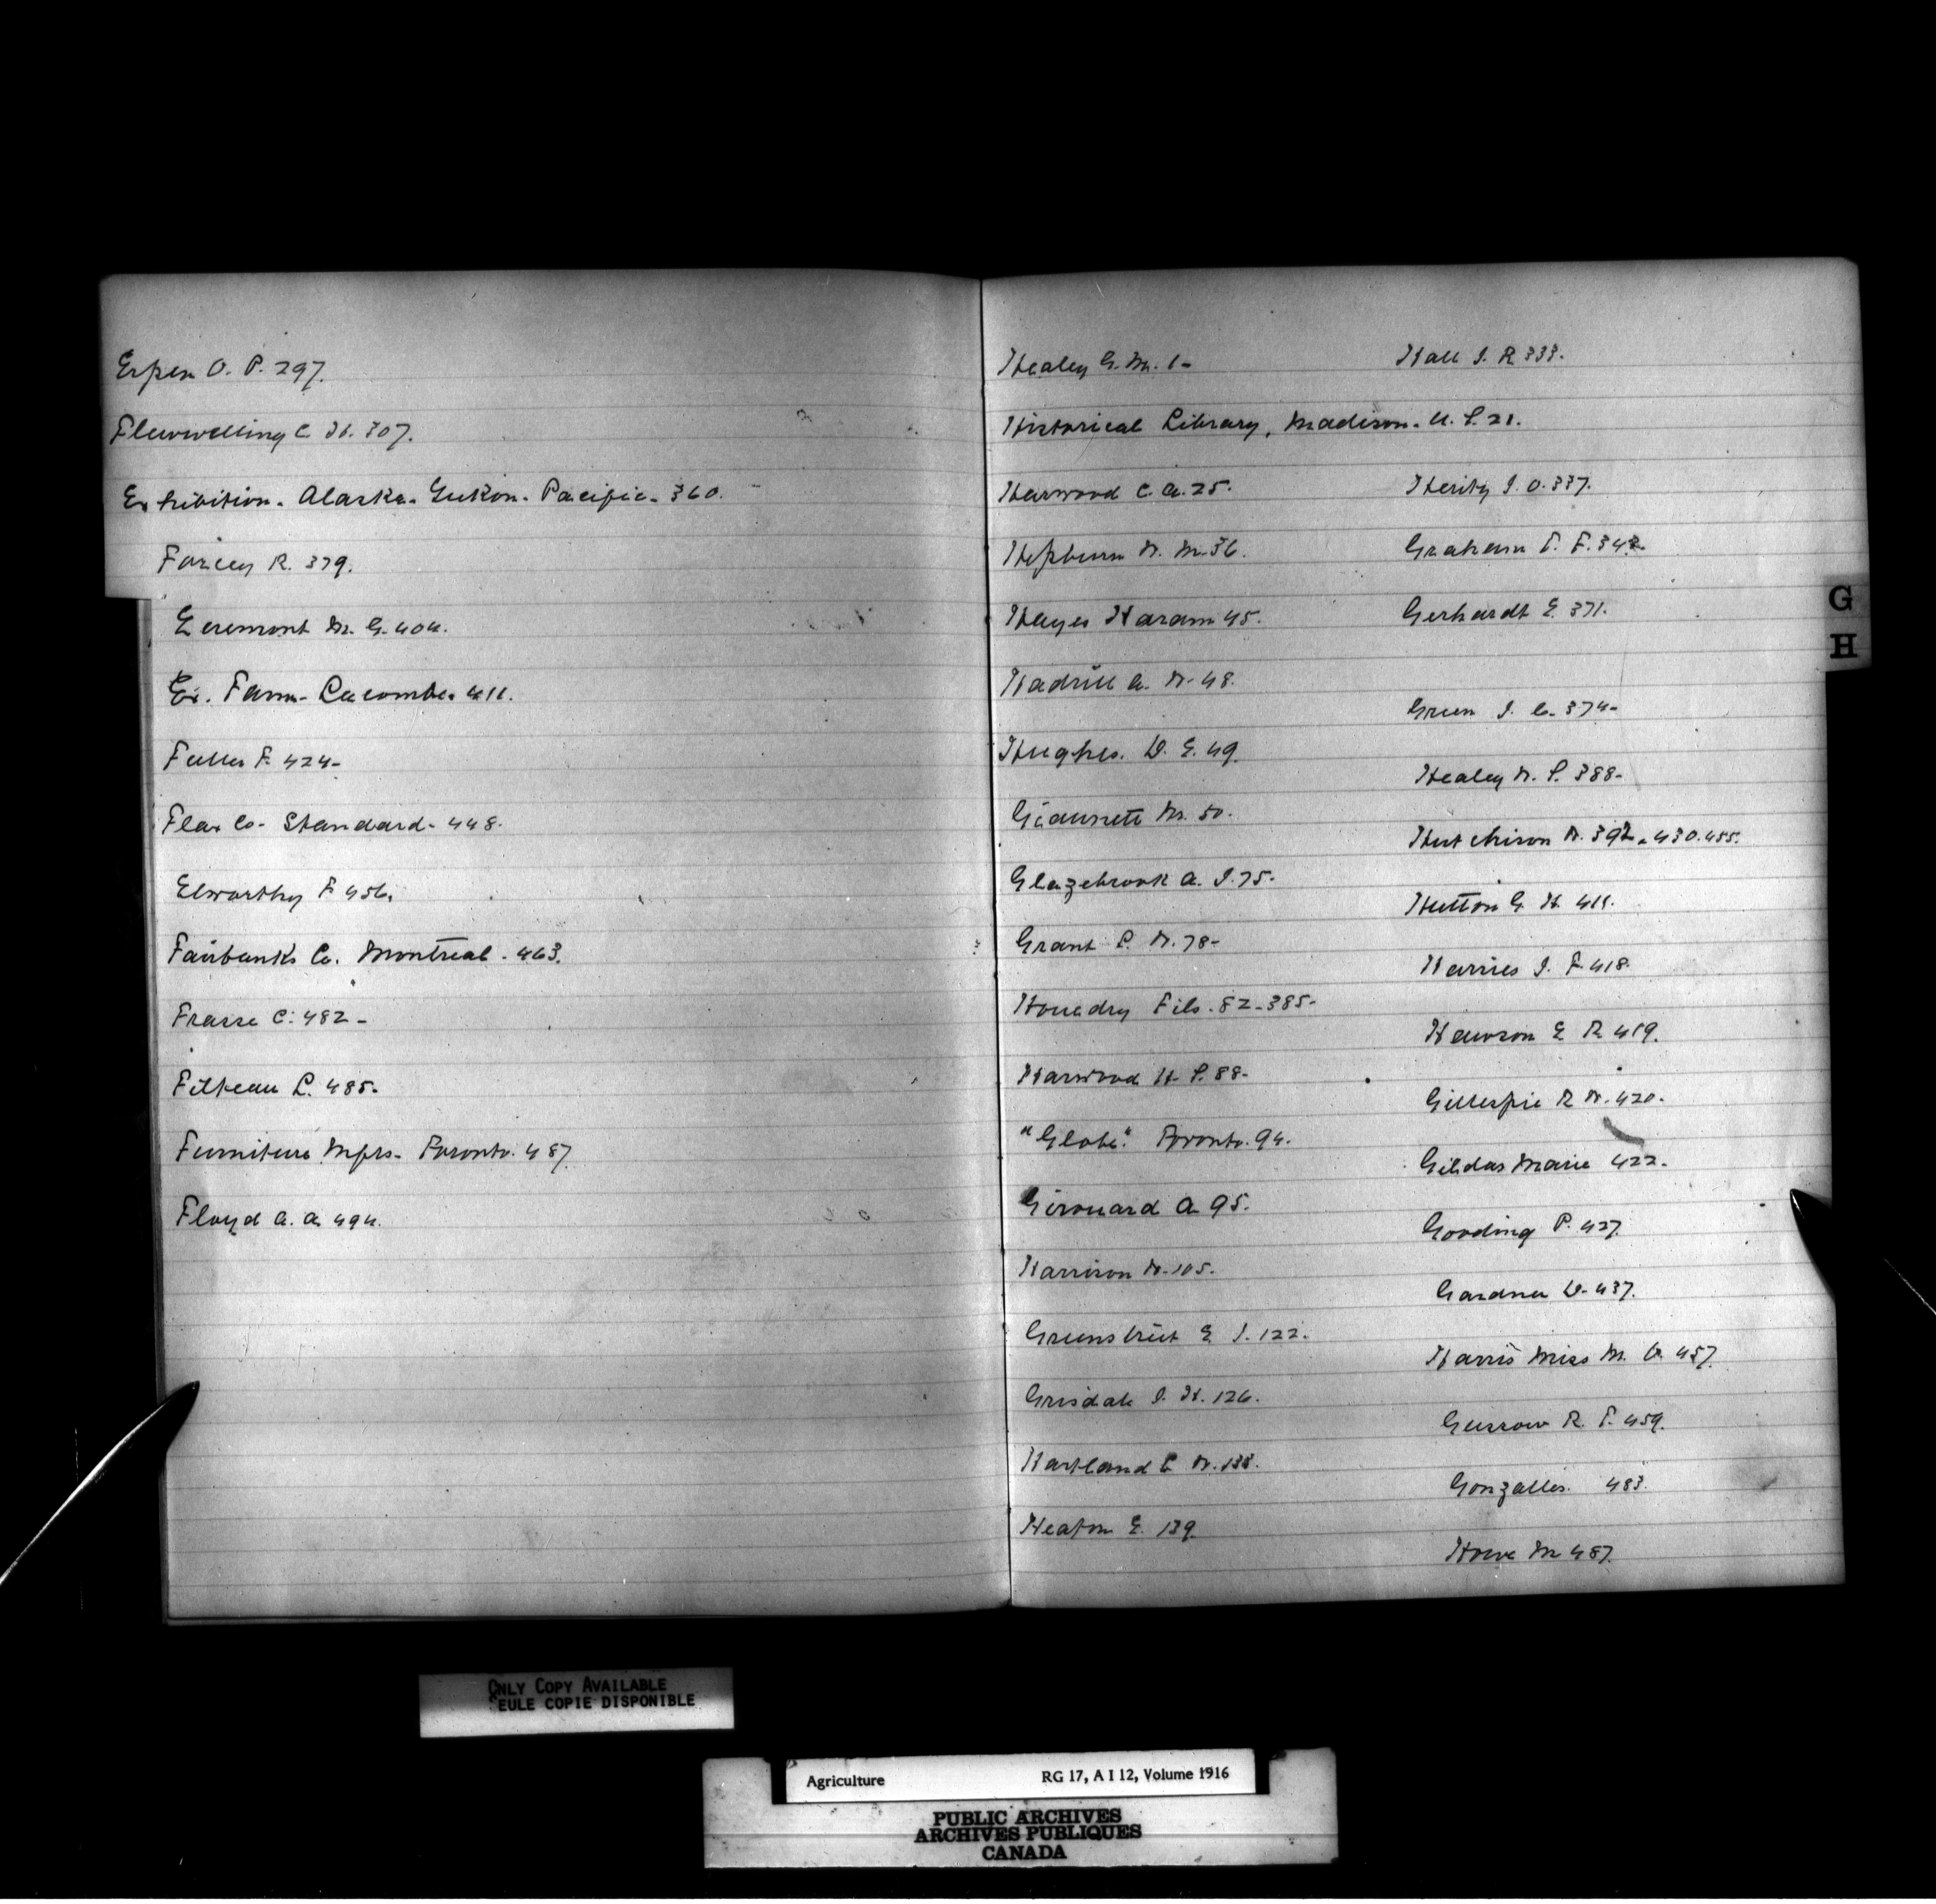 Espen O. P. 297.
Flewwelling C. H. 307.
Exhibition. Alaska. Yukon. Pacific. 360.
Farley R. 379.
Egremont M. G. 404.
Ex. Farm. Lacombe. 411.
Fuller F. 424-
Flax Co- Standard- 448.
Elworthy F 456.
Fairbanks Co. Montreal. 463.
Frasse C. 482-
Filteau L. 485-
Furniture Mfrs- Toronto. 487.
Floyd A. A. 494.
Healey G. M. 1-
Historical Library, Madison. U. S. 21.
Harwood C. A. 25.
Hepburn W. M. 36.
Hayes Haram 45.
Hadrill G. W. 48.
Hughes. D. E. 49.
Giaunetti M. 50.
Glazebrook A. J. 75-
Grant L. W. 78-
Houedry Fils. 82-385-
Harwood H. S. 88-
"Globe". Toronto. 94.
Girouard A 95.
Harrison W. 105.
Greenstreet E. J. 122.
Grisdale J. H. 126.
Hartland C W. 138.
Heaton E. 139.
Hall J. R 333.
Herity J. O. 337.
Graham F. F. 342
Gerhardt E. 371.
Green J. C. 374-
Healey W. S. 388-
Hutchison W. 392. 430. 455.
Hutton G. H. 411.
Harries J. F. 418.
Hewson E R 419.
Gillespie R W. 420.
Gildas Marie 422.
Gooding P. 427.
Gardner D- 437.
Harris Miss M. 457.
Gussow R. T. 459.
Gonzalles. 483.
Howe M 487.
G
H
ONLY COPY AVAILABLE
SEULE COPIE DISPONIBLE
Agriculture RG 17, A I 12, Volume 1916
PUBLIC ARCHIVES
ARCHIVES PUBLIQUES
CANADA